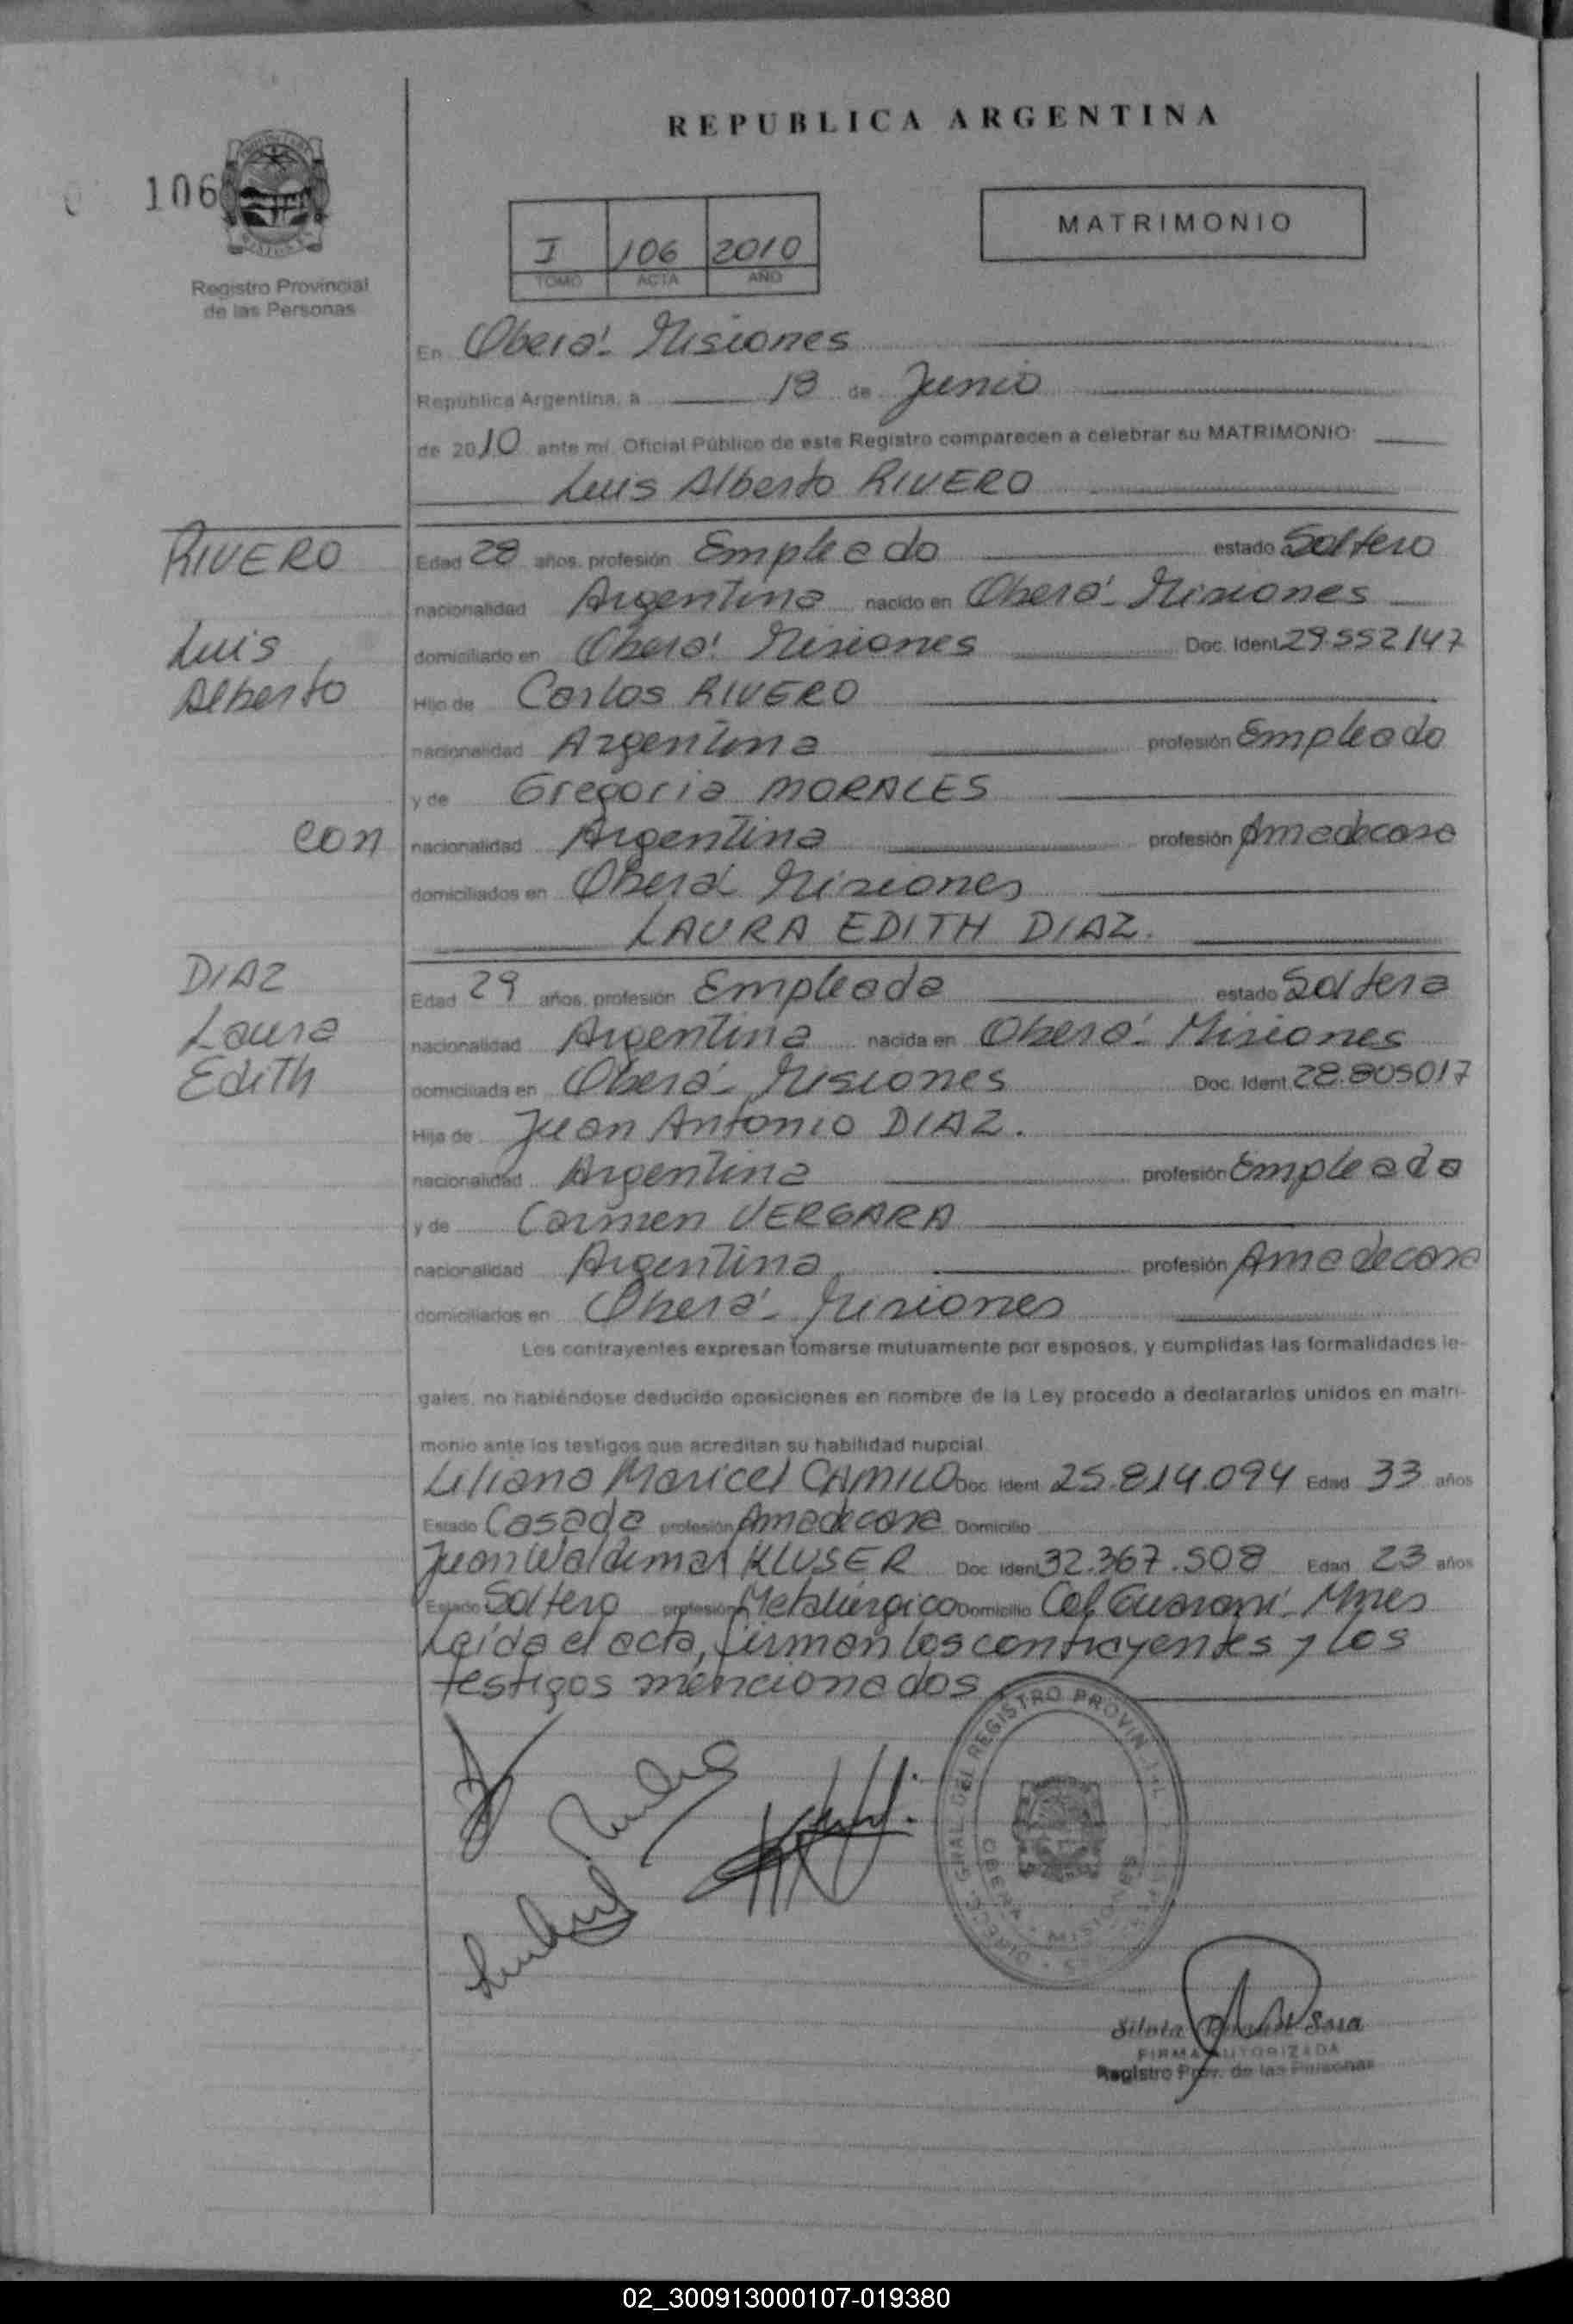 REPUBLICA ARGENTINA
106
MATRIMONIO
I 106 2010
TOMO ACTA AÑO
Registro Provincial
de las Personas
En Oberá - Misiones
República Argentina, a 18 de Junio
de 2010 ante mí, Oficial Público de este Registro comparecen a celebrar su MATRIMONIO:
Luis Alberto RIVERO
RIVERO
Edad 28 años, profesión Empleado estado Soltero
nacionalidad Argentina nacido en Oberá - Misiones
Luis
domiciliado en Oberá - Misiones Doc. Ident. 29.552.147
Alberto
Hijo de Carlos RIVERO
nacionalidad Argentina profesión Empleado
y de Gregoria MORALES
con
nacionalidad Argentina profesión Amadecasa
domiciliados en Oberá Misiones
LAURA EDITH DIAZ.
DIAZ
Edad 29 años, profesión Empleada estado Soltera
Laura
nacionalidad Argentina nacida en Oberá - Misiones
Edith
domiciliada en Oberá - Misiones Doc. Ident. 28.805017
Hija de Juan Antonio DIAZ.
nacionalidad Argentina profesión Empleado
y de Carmen VERGARA
nacionalidad Argentina profesión Amadecasa
domiciliados en Oberá - Misiones
Los contrayentes expresan tomarse mutuamente por esposos, y cumplidas las formalidades le-
gales, no habiéndose deducido oposiciones en nombre de la Ley procedo a declararlos unidos en matri-
monio ante los testigos que acreditan su habilidad nupcial.
Liliana Maricel CAMILO Doc. Ident. 25.814.094 Edad 33 años
Estado Casada profesión Amadecasa Domicilio
Juan Waldimar KLUSER Doc. Ident. 32.367.508 Edad 23 años
Estado Soltero profesión Metalúrgico Domicilio Col Guaraní - Mnes
Leída el acta, firman los contrayentes y los
testigos mencionados
DIREC. GRAL. DEL REGISTRO PROVINCIAL
OBERA - MISIONES
Silvia Sosa
FIRMA AUTORIZADA
Registro Prov. de las Personas
02_300913000107-019380